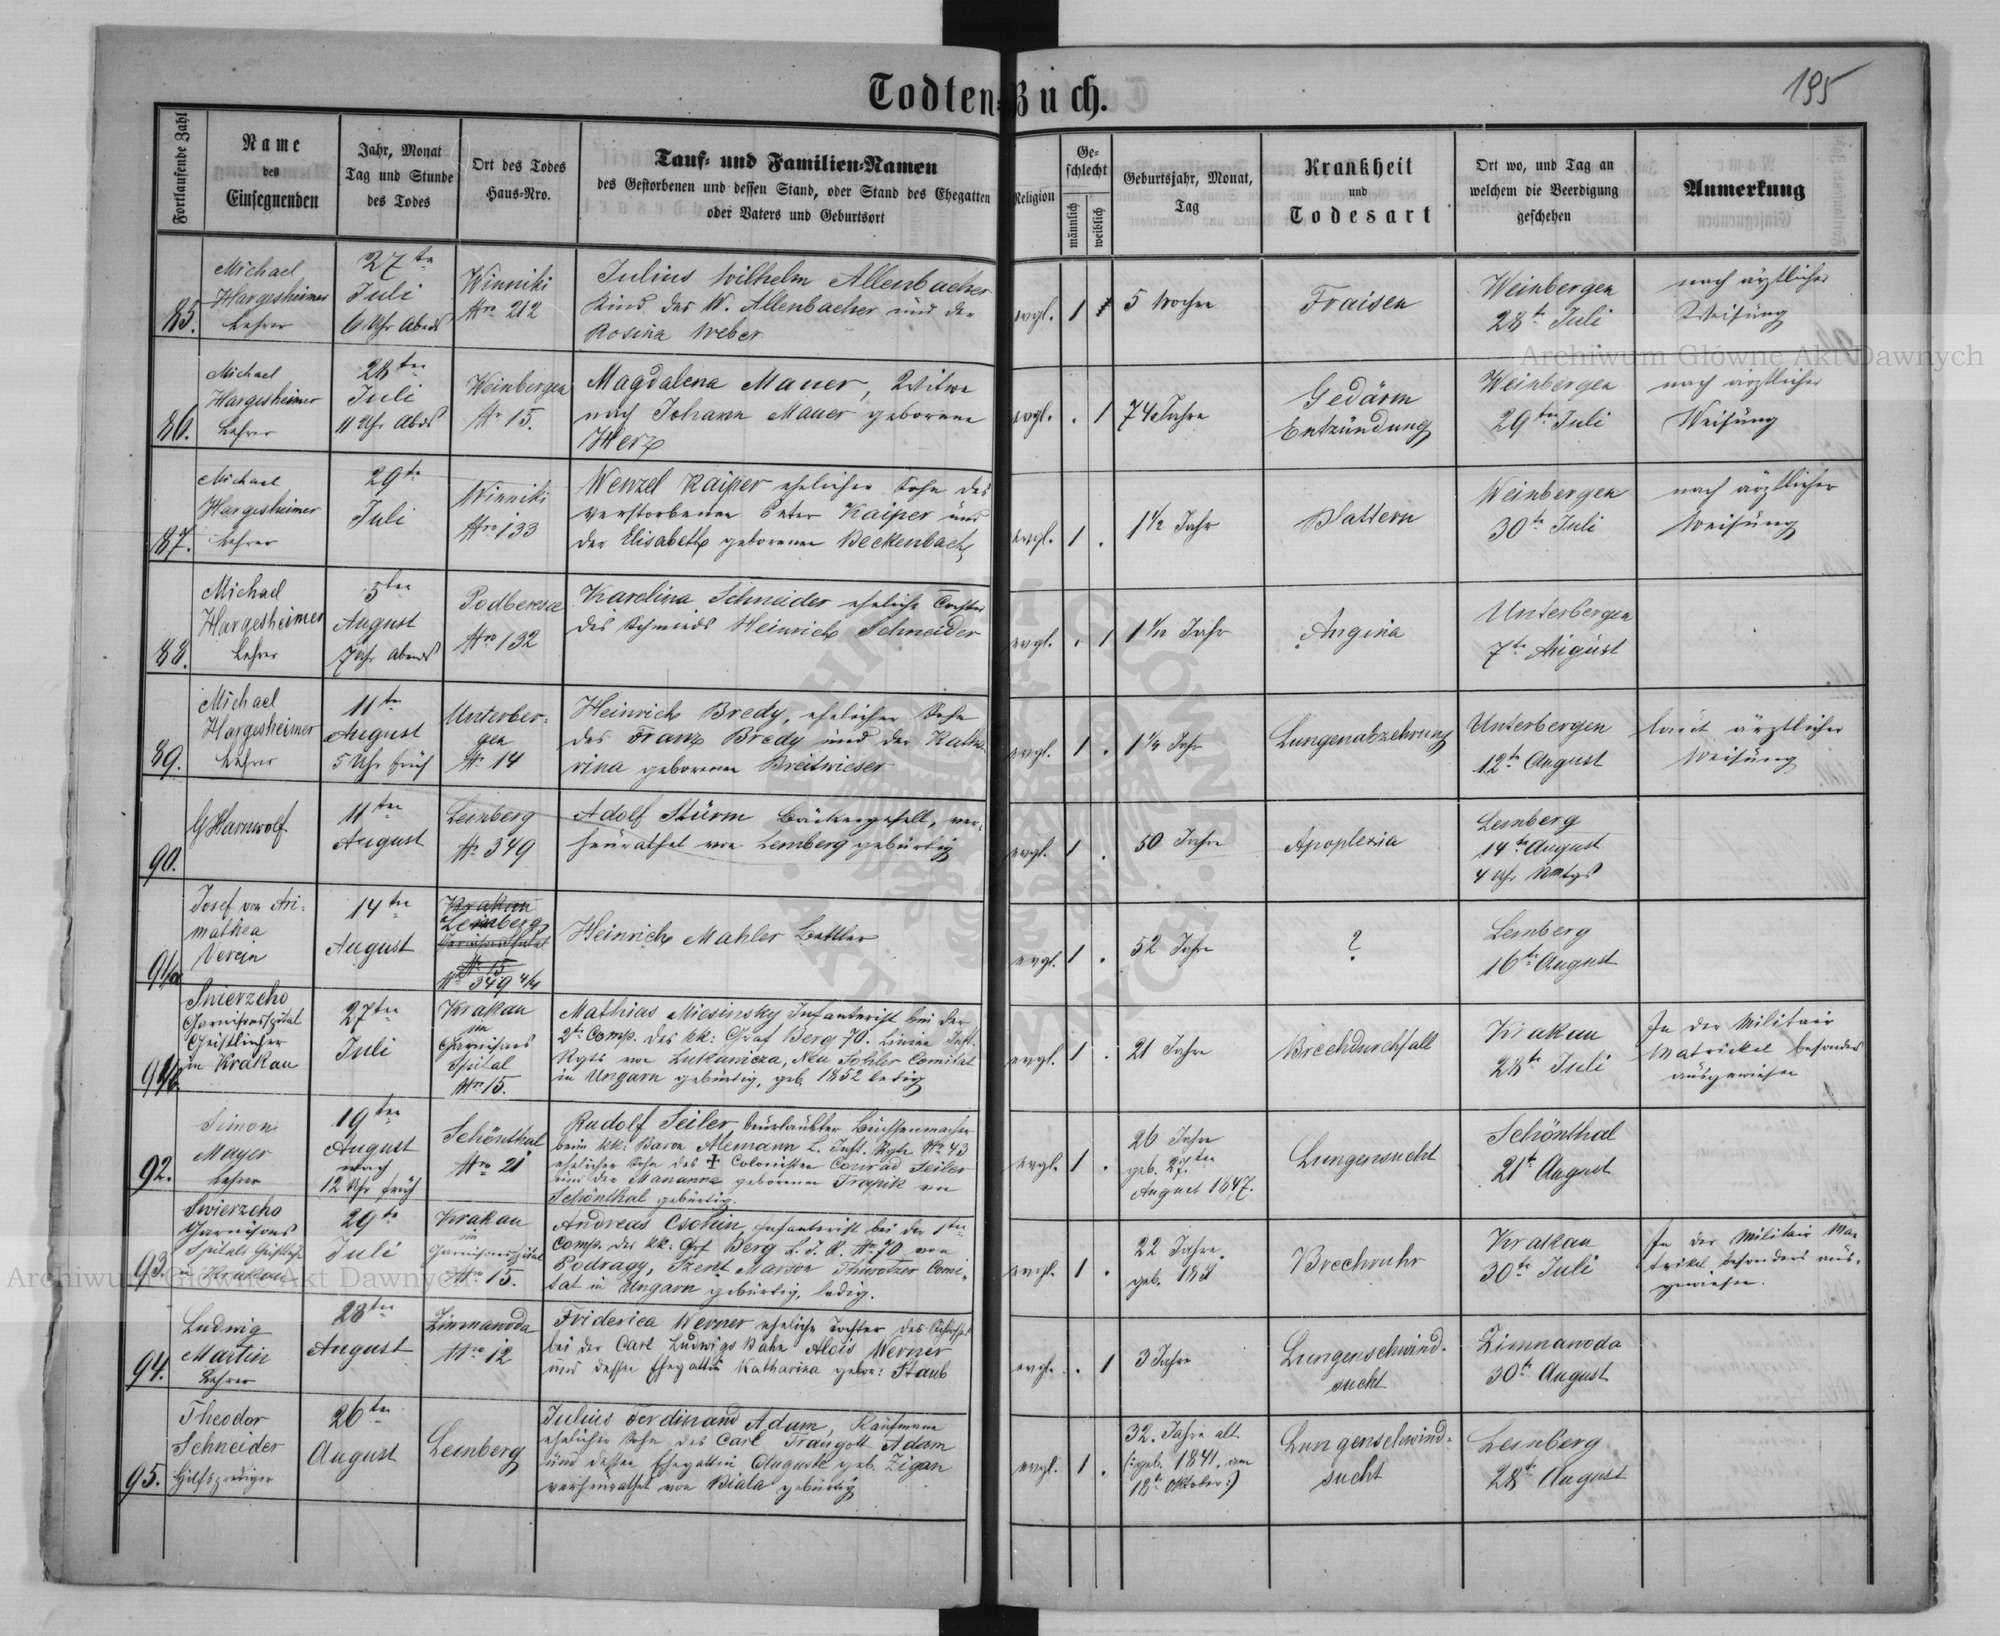 195
Todten=Buch.
Fortlaufende Zahl
Name
des
Einsegnenden
Jahr, Monat
Tag und Stunde
des Todes
Ort des Todes
Haus=Nro.
Tauf= und Familien=Namen
des Gestorbenen und dessen Stand, oder Stand des Ehegatten
oder Vaters und Geburtsort
Religion
Geschlecht
männlich
weiblich
Geburtsjahr, Monat,
Tag
Krankheit
und
Todesart
Ort wo, und Tag an
welchem die Beerdigung
geschehen
Anmerkung
85.
Michael
Hargesheimer
Lehrer
27te
Juli
6 Uhr Abends
Winniki
Nro 212
Julius Wilhelm Allenbacher
Kind des W. Allenbacher und der
Rosina Weber
evgl.
1
5 Wochen
Fraisen
Weinbergen
28te Juli
nach ärztlicher
Weisung
86.
Michael
Hargesheimer
Lehrer
28ten
Juli
11 Uhr Abds
Weinbergen
Nr 15.
Magdalena Mauer, Witwe
nach Johann Mauer geborene
Herz
evgl.
. 1
74 Jahre
Gedärm
Entzündung
Weinbergen
29ten Juli
nach ärztlicher
Weisung
87.
Michael
Hargesheimer
Lehrer
29te
Juli
Winniki
Nro 133
Wenzel Kaiper ehelicher Sohn des
verstorbenen Peter Kaiper und
der Elisabeth geborenen Beckenbach
evgl.
1 .
1½ Jahr
Blattern
Weinbergen
30te Juli
nach ärztlicher
Weisung
88.
Michael
Hargesheimer
Lehrer
5ten
August
7 Uhr Abends
Podberesce
Nro 132
Karolina Schneider eheliche Tochter
des Schmieds Heinrich Schneider
evgl.
. 1
Jahr
Angina
Unterbergen
7te August
89.
Michael
Hargesheimer
Lehrer
11te
August
5 Uhr früh
Unterber-
gen
Nr 14
Heinrich Bredy, ehelicher Sohn
des Franz Bredy und der Katha
rina geborenen Breitwieser
evgl.
1 .
Jahr
Lungenabzehrung
Unterbergen
12te August
laut ärztlicher
Weisung
90.
GHarnwolf
11ten
August
Lemberg
Nr 349
Adolf Sturm Bäckergesell, ver-
heurathet von Lemberg gebürtig
evgl.
1 .
50 Jahre
Apoplexia
Lemberg
14te August
4 Uhr Nmtgs
91/a
Josef von Ari-
mathea
Verein
14ten
August
Krakau
Lemberg
Nr 15
Nr 349 4/4
Heinrich Mahler Bettler
evgl.
1 .
52 Jahre
?
Lemberg
16te August
91/b
Swierzcho
Garnisonsspital
Geistlicher
in Krakau
27ten
Juli
Krakau
im
Garnisons
Spital
Nro 15.
Mathias Miesinsky Infanterist bei der
2te Comp. des kk: Graf Berg 70. Linien Inft.
Rgts von Lukanicza, Neu Sohler Comitat
in Ungarn gebürtig, geb. 1852 ledig
evgl.
1 .
21 Jahre
Brechdurchfall
Krakau
28te Juli
In der Militair
Matrickel besonders
ausgewiesen
92.
Simon
Mayer
Lehrer
19ten
August
nach
12 Uhr früh
Schönthal
Nro 21
Rudolf Seiler beurlaubter Büchsenmacher
beim kk: Baron Alemann L. Inft. Rgte Nr 43
ehelicher Sohn des ✝ Colonisten Conrad Seiler
und der Marianna geborenen Trapik von
Schönthal gebürtig.
evgl.
1 .
26 Jahre
geb. 27ten
August 1847.
Lungensucht
Schönthal
21te August
93.
Swierzcho
Garnisons
Spitals Geistliche
in Krakau
29te
Juli
Krakau
im
Garnisonsspital
Nro 15.
Andreas Csohin, Infanterist bei der 1ten
Comp. des kk: Grf Berg L. I. R. Nr 70 von
Podragy, Szent Marton Thurotzer Comi-
tat in Ungarn gebürtig, ledig.
evgl.
1 .
22 Jahre.
geb. 1851
Brechruhr
Krakau
30te Juli
In der Militair Ma-
trikel besonders aus-
gewiesen.
94.
Ludwig
Martin
Lehrer
28ten
August
Zimnawoda
Nro 12
Friderica Werner eheliche Tochter des
bei der Carl Ludwigs Bahn Alois Werner
und dessen Ehegattin Katharina gebor: Staub
evgl.
. 1
3 Jahre
Lungenschwind-
sucht
Zimnawoda
30te August
95.
Theodor
Schneider
Hilfsprediger
26ten
August
Lemberg
Julius Ferdinand Adam, Kaufmann
ehelicher Sohn des Carl Traugott Adam
und dessen Ehegattin Auguste geb. Zigan
verheurathet von Biala gebürtig
evgl.
1 .
32. Jahre alt
(:geb. 1841. am
18te Oktober:)
Lungenschwind-
sucht
Lemberg
28te August
Archiwum Główne Akt Dawnych
Archiwum Główne Akt Dawnych